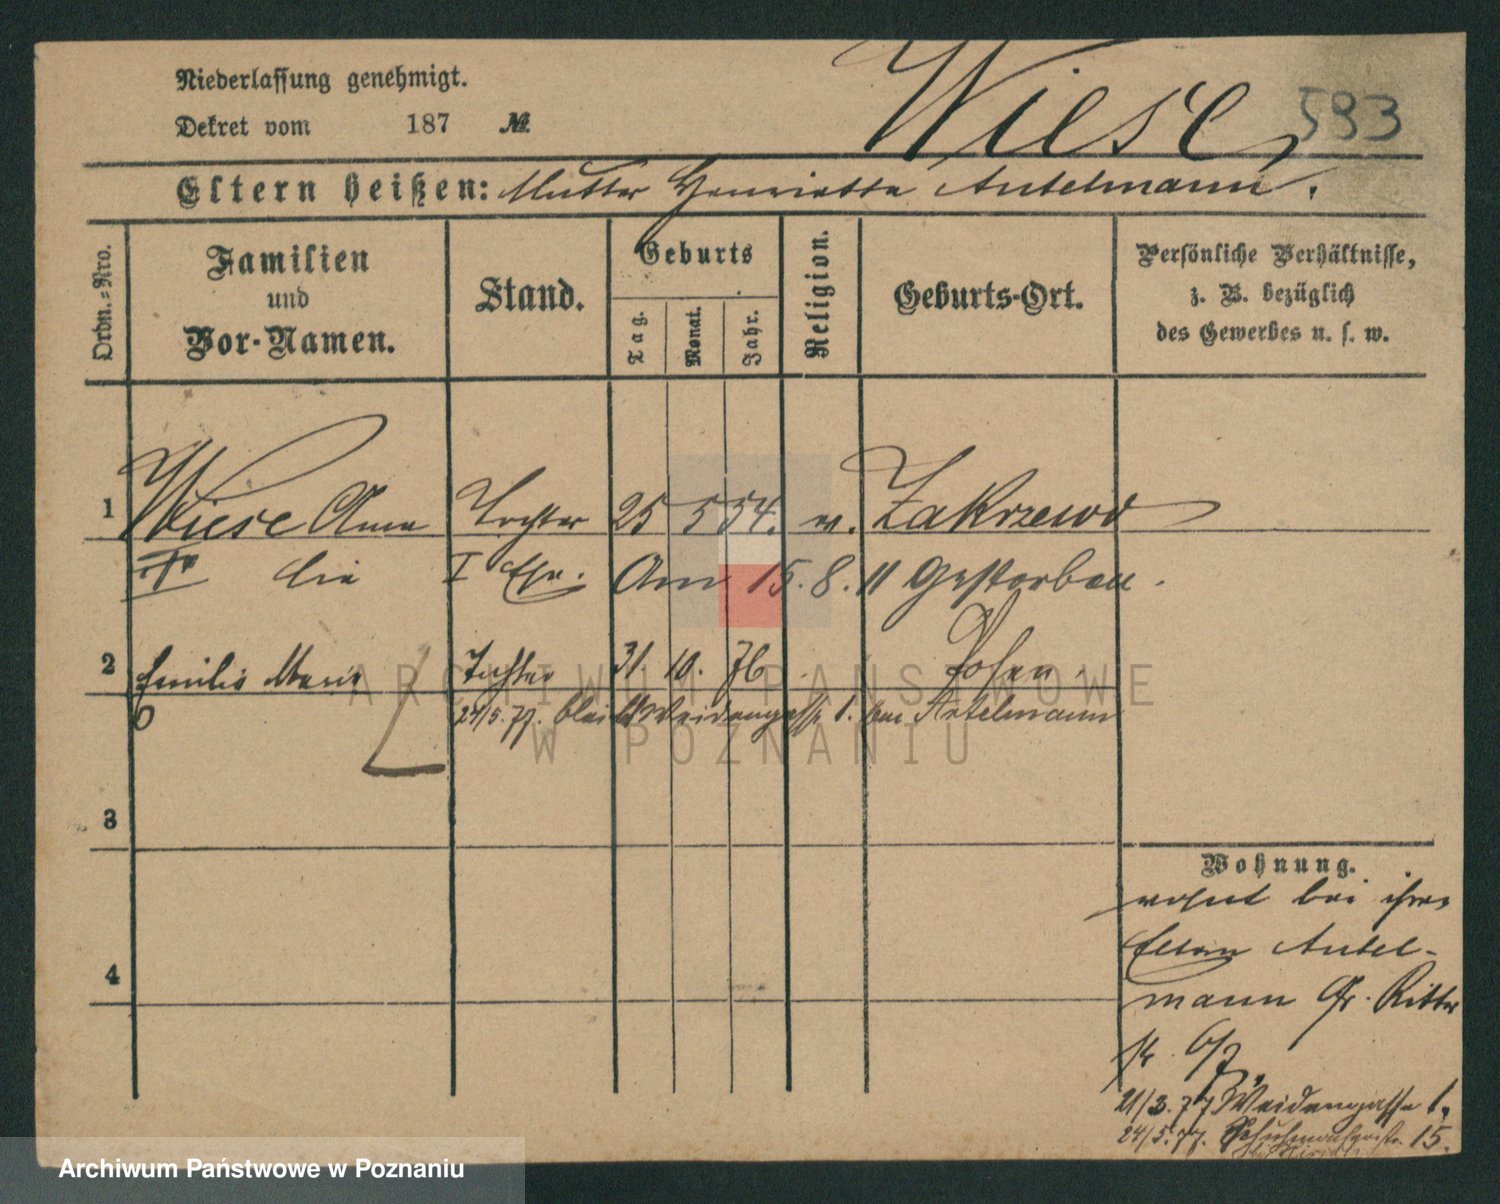 Niederlassung genehmigt.
Wiese
593
Dekret vom 187 №
Eltern heißen: Mutter Henriette Antelmann.
Ordn.-Nro.
Familien und Vor-Namen.
Stand.
Geburts
Tag.
Monat.
Jahr.
Religion.
Geburts-Ort.
Persönliche Verhältnisse,
z. B. bezüglich
des Gewerbes u. s. w.
1 Wiese Anna Tochter 25 5 54. Zakrzewo
I Ehe. Am 15.8.11 Gestorben.
2 Emilie Marie Tochter 31. 10. 76 Posen.
0 24/5.77. bleibt Weidengasse 1. bei Antelmann
3
Wohnung.
wohnt bei ihren
Eltern Antel-
4
mann Gr. Ritter
str. 6/7
21/3.77 Weidengasse 1.
24/5.77. 15.
ARCHIWUM PAŃSTWOWE
W POZNANIU
Archiwum Państwowe w Poznaniu